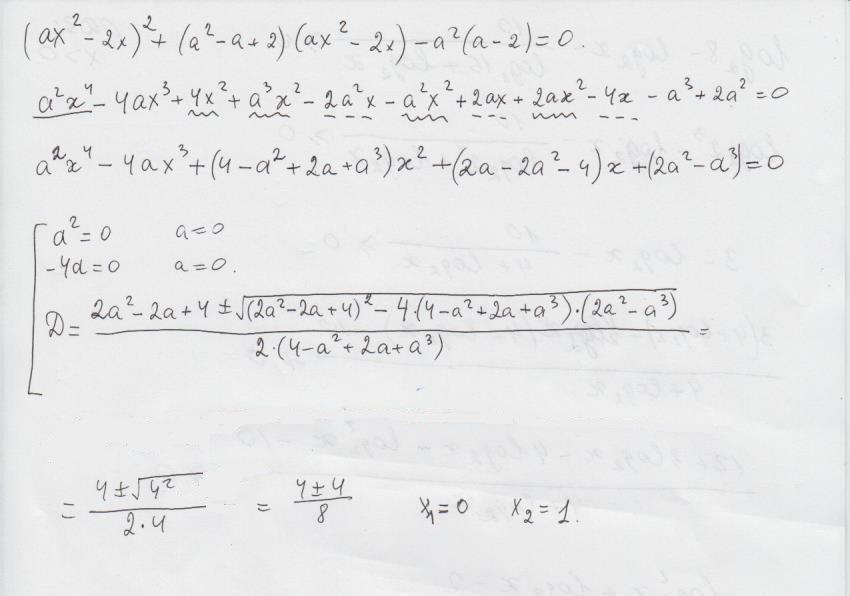 (ax² - 2x)² + (a² - a + 2)(ax² - 2x) - a²(a - 2) = 0.
a²x⁴ - 4ax³ + 4x² + a³x² - 2a²x - a²x² + 2ax + 2ax² - 4x - a³ + 2a² = 0
a²x⁴ - 4ax³ + (4 - a² + 2a + a³)x² + (2a - 2a² - 4)x + (2a² - a³) = 0
a² = 0 a = 0
-4a = 0 a = 0.
D = (2a² - 2a + 4 ± √((2a² - 2a + 4)² - 4·(4 - a² + 2a + a³)·(2a² - a³))) / (2·(4 - a² + 2a + a³)) =
= (4 ± √4²) / (2·4) = (4 ± 4) / 8 x₁ = 0 x₂ = 1.